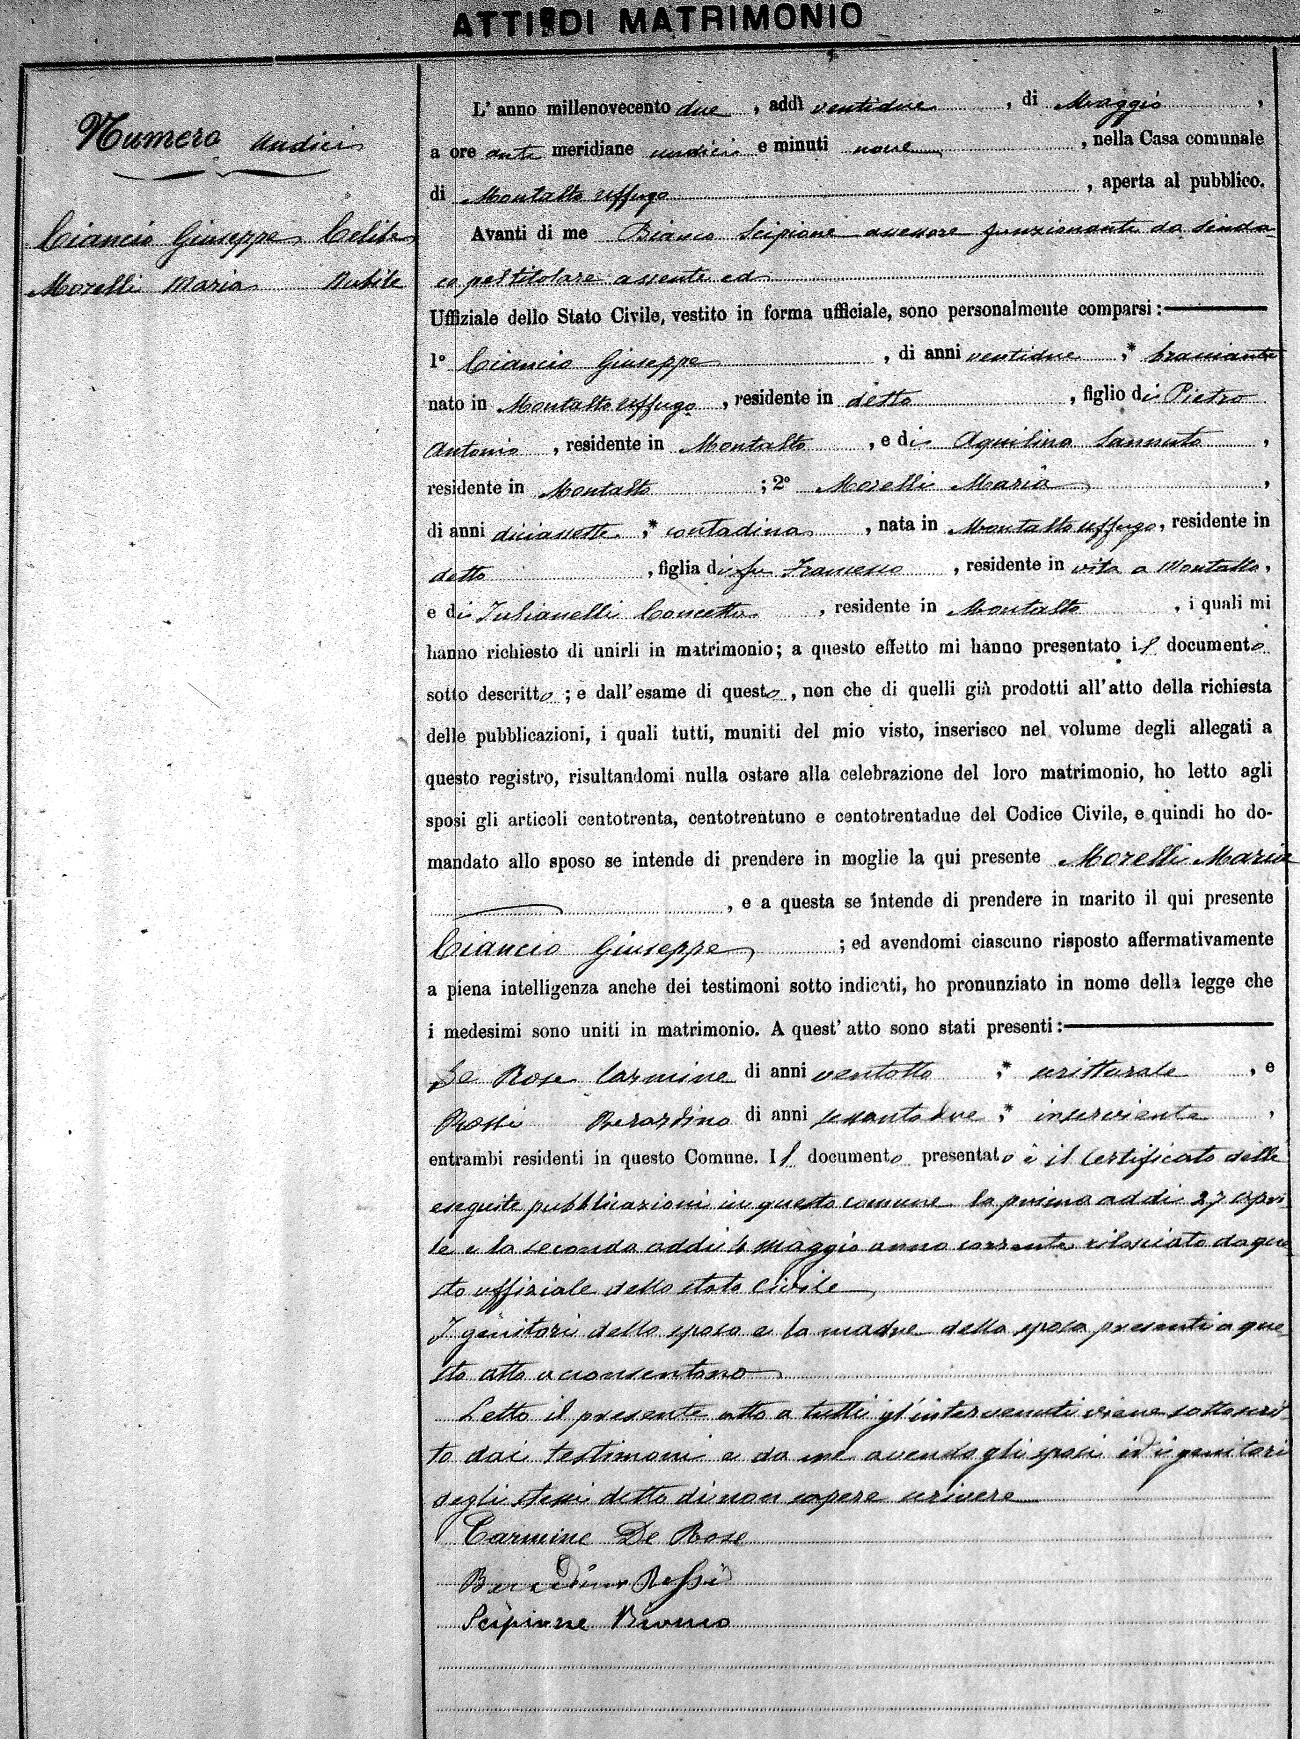 ATTI DI MATRIMONIO
Numero undici
Ciancio Giuseppe Celibe
Morelli Maria Nubile
L'anno millenovecento due, addì ventidue, di Maggio,
a ore anti meridiane undici e minuti nove, nella Casa comunale
di Montalto Uffugo, aperta al pubblico.
Avanti di me Bianco Scipione assessore funzionante da sinda-
co pel titolare assente ed
Uffiziale dello Stato Civile, vestito in forma ufficiale, sono personalmente comparsi:
1º Ciancio Giuseppe, di anni ventidue,* bracciante
nato in Montalto Uffugo, residente in detto, figlio di Pietro
Antonio, residente in Montalto, e di Aquilina Sannuto,
residente in Montalto; 2º Morelli Maria,
di anni diciassette,* contadina, nata in Montalto Uffugo, residente in
detto, figlia di fu Francesco, residente in vita a Montalto,
e di Concetta, residente in Montalto, i quali mi
hanno richiesto di unirli in matrimonio; a questo effetto mi hanno presentato il documento
sotto descritto; e dall'esame di questo, non che di quelli già prodotti all'atto della richiesta
delle pubblicazioni, i quali tutti, muniti del mio visto, inserisco nel volume degli allegati a
questo registro, risultandomi nulla ostare alla celebrazione del loro matrimonio, ho letto agli
sposi gli articoli centotrenta, centotrentuno e centotrentadue del Codice Civile, e quindi ho do-
mandato allo sposo se intende di prendere in moglie la qui presente Morelli Maria
, e a questa se intende di prendere in marito il qui presente
Ciancio Giuseppe; ed avendomi ciascuno risposto affermativamente
a piena intelligenza anche dei testimoni sotto indicati, ho pronunziato in nome della legge che
i medesimi sono uniti in matrimonio. A quest'atto sono stati presenti:
De Rose Carmine di anni ventotto,* scritturale, e
Rossi Berardino di anni sessantadue,* inserviente,
entrambi residenti in questo Comune. Il documento presentato è il certificato delle
eseguite pubblicazioni in questo comune la prima addì 27 apri-
le e la seconda addì 4 maggio anno corrente rilasciato da que
sto uffiziale dello stato civile
I genitori dello sposo e la madre della sposa presenti a que-
sto atto acconsentono
Letto il presente atto a tutti gl'intervenuti viene sottoscrit-
to dai testimoni e da me avendo gli sposi ed i genitori
degli stessi detto di non sapere scrivere
Carmine De Rose
Berardino Rossi
Scipione Bianco